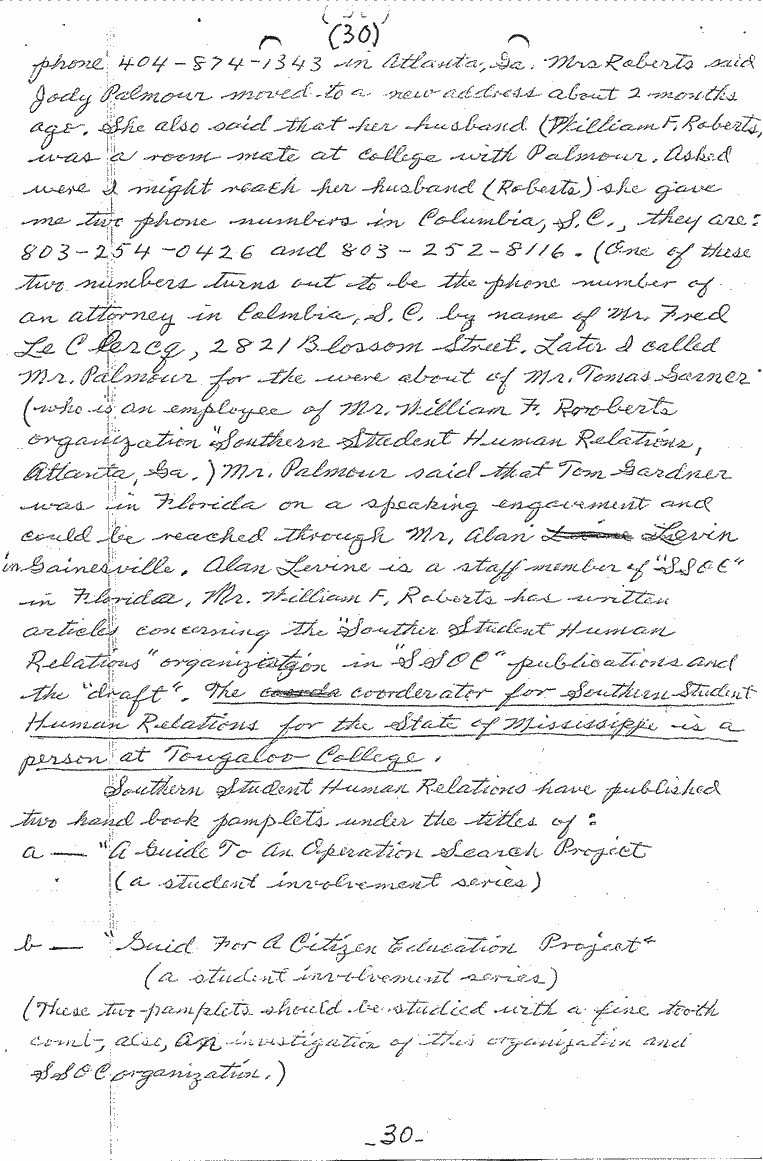 (30)
phone 404-874-1343 in Atlanta, Ga. Mrs Roberts said
Jody Palmour moved to a new address about 2 months
age. She also said that her husband (William F. Roberts,
was a room mate at college with Palmour. Asked
were I might reach her husband (Roberts) she gave
me two phone numbers in Columbia, S.C., they are:
803-254-0426 and 803-252-8116. (One of these
two numbers turns out to be the phone number of
an attorney in Colmbia, S.C. by name of Mr. Fred
Le Clercq, 2821 Blossom Street. Later I called
Mr. Palmour for the were about of Mr. Tomas Garner
(who is an employee of Mr. William F. Rowberts
organization "Southern Student Human Relations,
Atlanta, Ga.) Mr. Palmour said that Tom Gardner
was in Florida on a speaking engavement and
could be reached through Mr. Alan Levin
in Gainesville. Alan Levine is a staff member of "SSOC"
in Florida. Mr. William F. Roberts has written
articles concerning the "Souther Student Human
Relations" organization in "SSOC" publications and
the "draft". The coorda coorderator for Southern Student
Human Relations for the State of Mississippi is a
person at Tougaloo College.
Southern Student Human Relations have published
two hand book pamplets under the titles of:
a — "A Guide To An Operation Search Project
(a student involvement series)
b — "Guid For A Citizen Education Project"
(a student involvement series)
(These two pamplets should be studied with a fine tooth
comb, also, an investigation of this organization and
SSOC organization.)
-30-